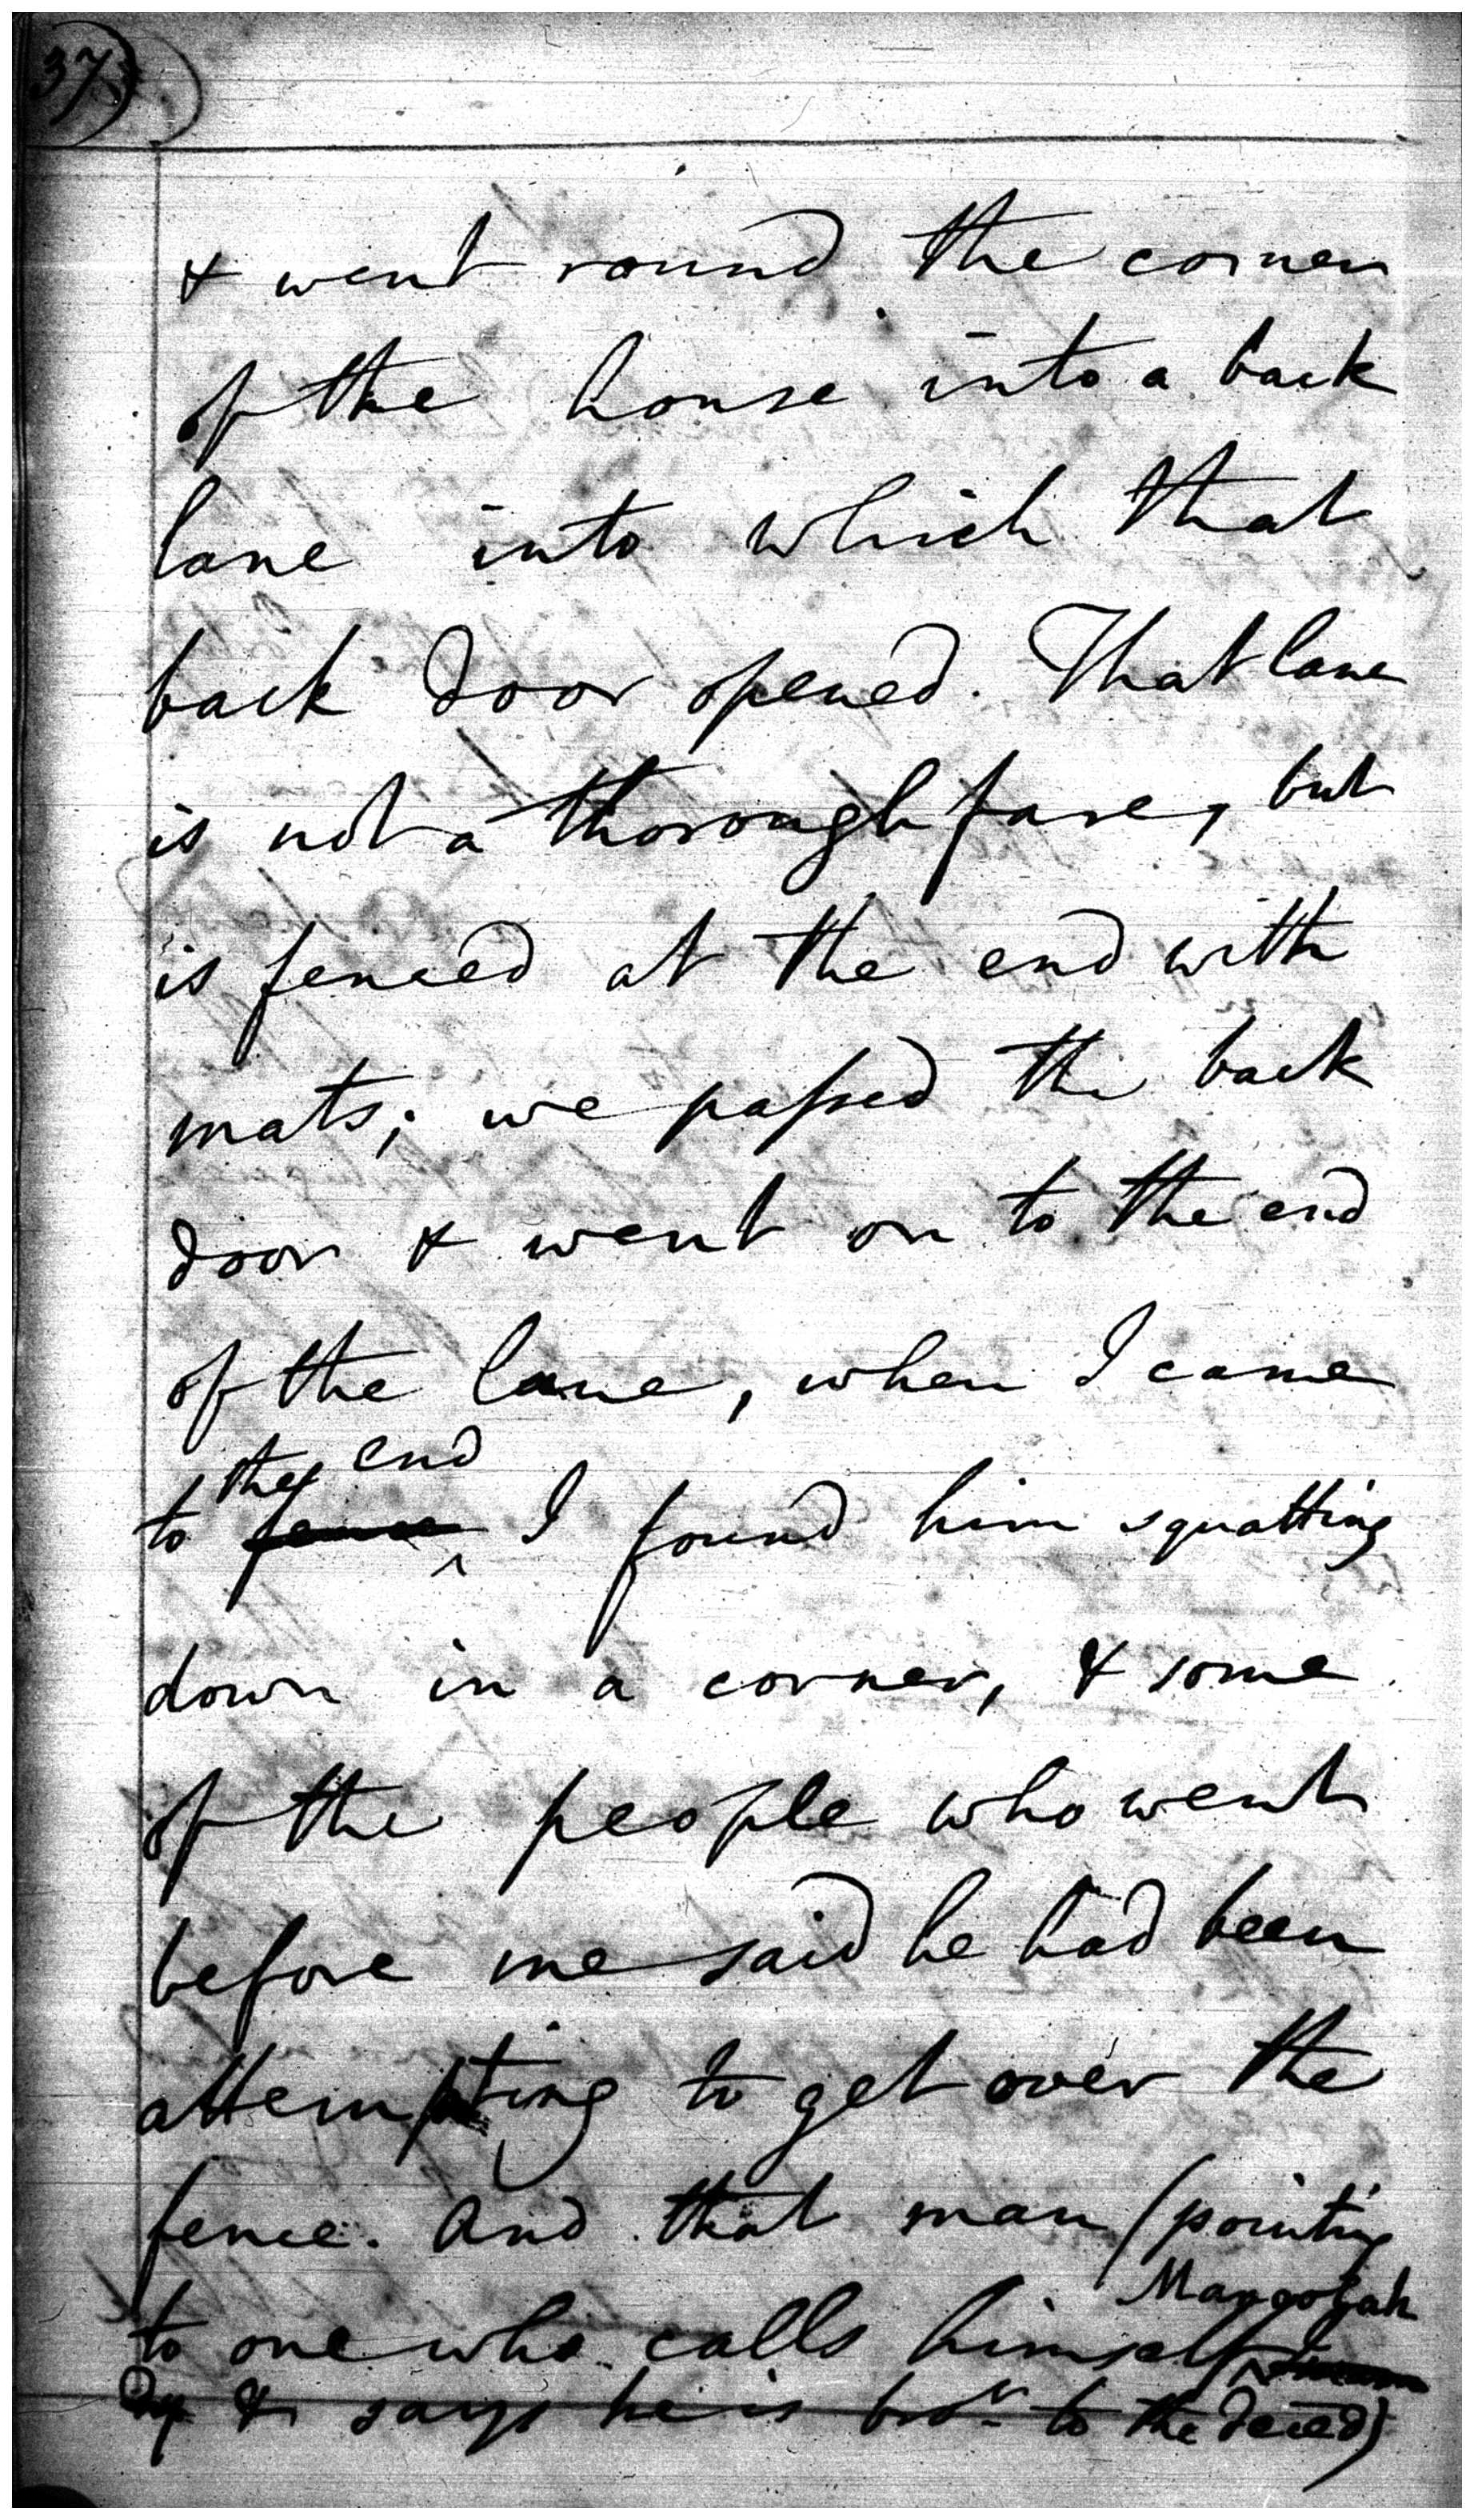 37)
& went round the corner
of the house into a back
lane into which that
back door opened. That lane
is not a thoroughfare, but
is fenced at the end with
mats; we passed the back
door & went on to the end
of the lane, when I came
the end
to fence I found him squatting
down in a corner, & some
of the people who went
before me said he had been
attempting to get over the
fence. And that man (pointing
to one who calls himself
& says he is bror. to the deced)